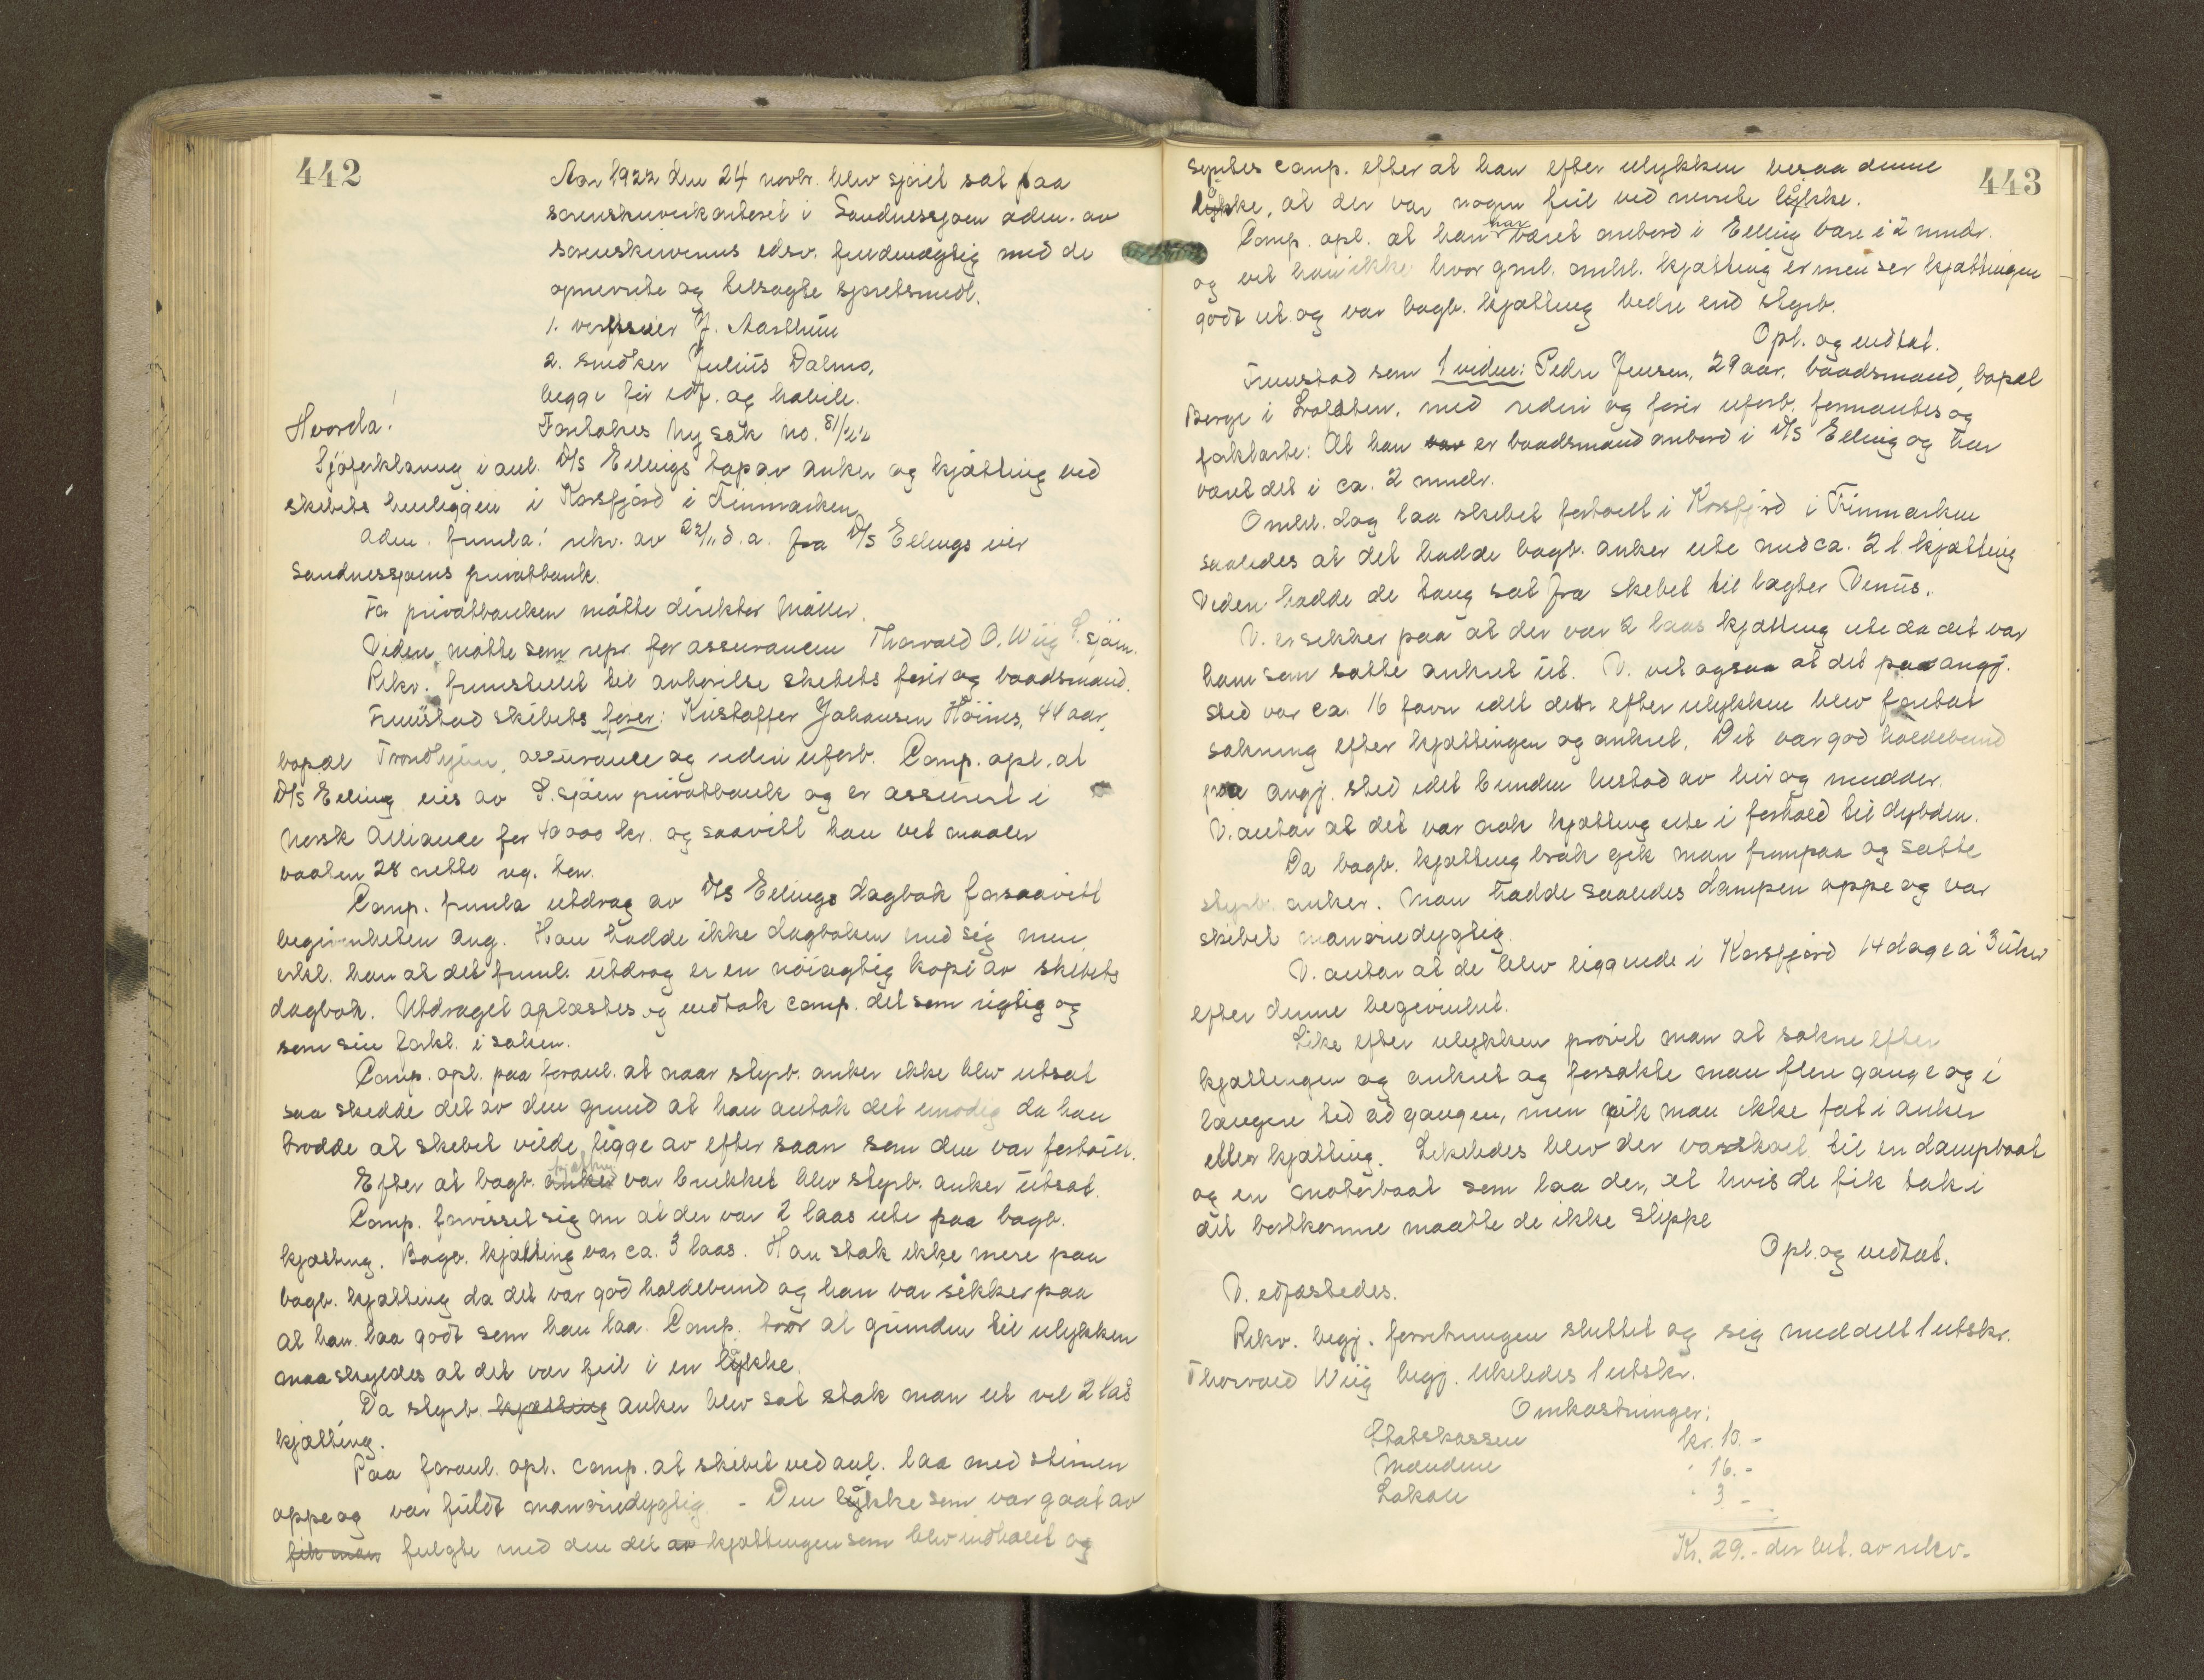 442
Aar 1922 den 24 novbr. blev sjøret sat paa
sorenskriverkontoret i Sandnessjøen adm. av
sorenskriverens edsv. fuldmægtig med de
opnevnte og tilsagte sjøretsmedl.
1. verftseier J. Aasthun
2. snedker Julius Dalmo,
begge før edf. og habile.
Hvorda! Foretokes Ny sak no. 81/22
Sjøforklaring i anl. D/S Ellings tap av anker og kjætting ved
skibets henliggen i Korsfjord i Finmarken.
Adm. fremla: rekv. av 22/11 d.a. fra D/S Ellings eier
Sandnessjøens privatbank.
For privatbanken møtte direktør Møller.
Videre møtte som repr. for assurancen Thorvald O. Wiig S.sjøen.
Rekv. fremstillet til avhørelse skibets fører og baadsmand.
Fremstod skibets fører: Kristoffer Johansen Høines, 44 aar,
bopæl Trondhjem, assurance og rederi uforb. Comp. opl. at
D/S Elling eies av S.sjøen privatbank og er assurert i
Norsk Alliance for 40000 kr. og saavitt han vet maaler
baaten 28 netto reg. ton.
Comp. fremla utdrag av D/S Ellings dagbok forsaavitt
begivenheten ang. Han hadde ikke dagboken med sig men
erkl. han at det freml. utdrag er en nøiagtig kopi av skibets
dagbok. Utdraget oplæstes og vedtok comp. det som rigtig og
som sin forkl. i saken.
Comp. opl. paa foranl. at naar styrb. anker ikke blev utsat
saa skedde det av den grund at han antok det unødig da han
trodde at skibet vilde ligge av efter saan som den var fortøiet.
Efter at bagb. anker kjætting var brukket blev styrb. anker utsat.
Comp. forvisset sig om at der var 2 laas ute paa bagb.
kjætting. Bagb. kjætting var ca. 3 laas. Han stak ikke mere paa
bagb. kjætting da det var god holdebund og han var sikker paa
at han laa godt som han laa. Comp. tror at grunden til ulykken
maa skyldes at det var feil i en løkke.
Da styrb. kjætting anker blev sat stak man ut vel 2 lås
kjætting.
Paa foranl. opl. comp. at skibet ved anl. laa med stimen
oppe og var fuldt manøvredygtig. - Den løkke som var gaat av
fik man fulgte med den del av kjættingen som blev indhalet og
443
syntes comp. efter at han efter ulykken besaa denne
løkke, at der var nogen feil ved nevnte løkke.
Comp. opl. at han har været ombord i Elling bare i 2 mndr.
og vet han ikke hvor gml. omhl. kjætting er men ser kjættingen
godt ut og var bagb. kjætting bedre end styrb.
Opl. og vedtat.
Fremstod som 1 vidne: Peder Jensen, 29 aar, baadsmand, bopæl
Berge i Lofoten, med rederi og fører uforb. formantes og
forklarte: At han var er baadsmand ombord i D/S Elling og har
været det i ca. 2 mndr.
Omhl. dag laa skibet fortøiet i Korsfjord i Finmarken
saaledes at det hadde bagb. anker ute med ca. 2 l. kjætting
Viden hadde de taug sat fra skibet til lægter Venus.
V. er sikker paa at der var 2 laas kjætting ute da det var
ham som satte ankret ut. V. vet ogsaa at det paa angj.
sted var ca. 16 favn idet der efter ulykken blev foretat
sokning efter kjættingen og ankret. Det var god holdebund
paa angj. sted idet bunden bestod av leir og mudder.
V. antar at det var nok kjætting ute i forhold til dybden.
Da bagb. kjætting brak gik man frempaa og satte
styrb. anker. Man hadde saaledes dampen oppe og var
skibet manøvredygtig.
V. antar at de blev liggende i Korsfjord 14 dage à 3 uker
efter denne begivenhet.
Like efter ulykken prøvet man at sokne efter
kjættingen og ankret og forsøkte man flere gange og i
længere tid ad gangen, men fik man ikke fat i anker
eller kjætting. Likeledes blev der varskoet til en dampbaat
og en motorbaat som laa der, at hvis de fik tak i
det bortkomne maatte de ikke slippe
Opl. og vedtat.
V. edfæstedes.
Rekv. begj. forretningen sluttet og sig meddelt 1 utskr.
Thorvald Wiig begj. likeledes 1 utskr.
Omkostninger:
Statskassen kr. 10.-
Mændene " 16.-
Lokale " 3.-
Kr. 29.- der bet. av rekv.